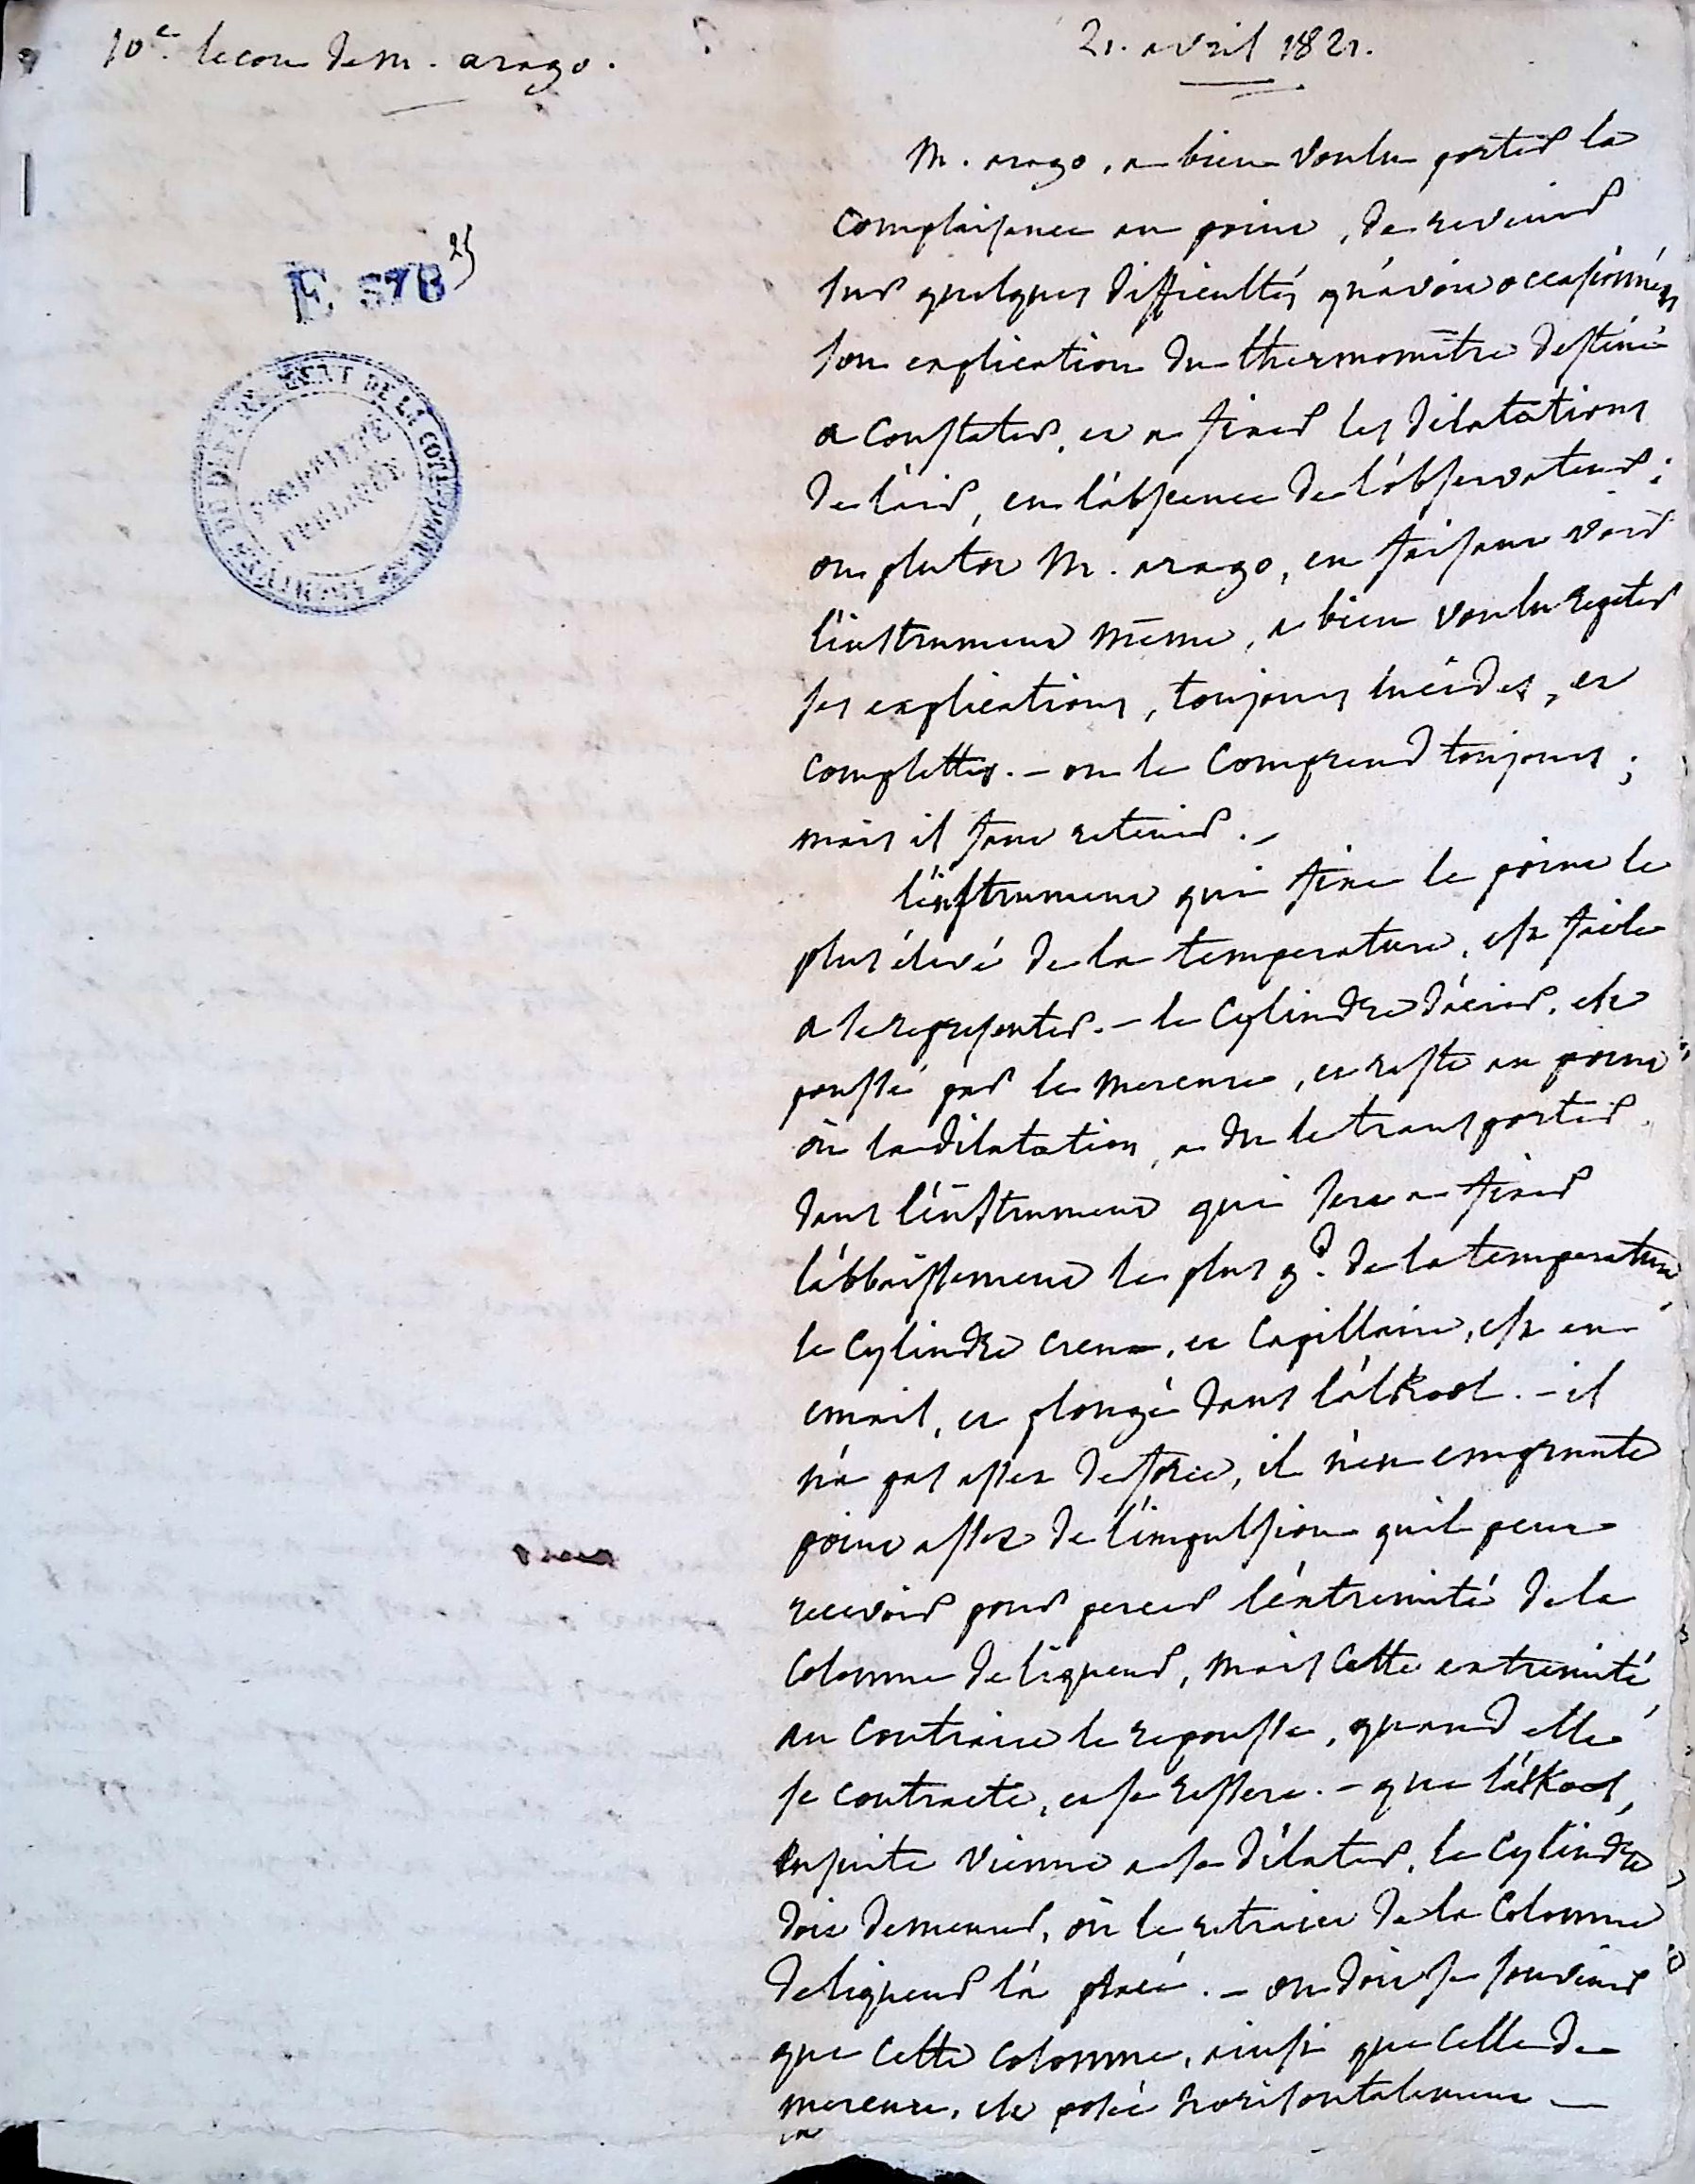 10e. lecon de m. arago.
21. avril 1821.
E 378 25
ARCHIVES DU DEPARTEMENT DE LA COTE D'OR
PROPRIÉTÉ
PUBLIQUE
M. arago, a bien voulu porter la
complaisance au point, de revenir
sur quelques difficultés qu'avoit occasionnées
son explication du thermomètre destiné
a constater, et a fixer les dilatations
de l'air, en l'absence de l'observateur;
ou plutot M. arago, en faisant voir
l'instrument même, a bien voulu repeter
ses explications, toujours lucides, et
complettes. - on le comprend toujours;
mais il faut retenir. -
l'instrument qui fixe le point le
plus élevé de la temperature, est facile
a se representer. - le cylindre d'acier, est
poussé par le mercure, et reste au point
où la dilatation, a du le transporter.
dans l'instrument qui sert a fixer
l'abbaissement le plus gd. de la temperature,
le cylindre creux, et capillaire, est en
email, et plongé dans l'alkool. - il
n'a pas assez de force, il n'en emprunte
point assez de l'impulsion qu'il peut
recevoir pour percer l'extremité de la
colonne de liqueur, mais cette extremité,
au contraire le repousse, quand elle
se contracte, et se resserre. - que l'alkool,
ensuite vienne a se dilater, le cylindre
doit demeurer, où le retrait de la colonne
de liqueur l'a placé. - on doit se souvenir
que cette colonne, ainsi que celle de
mercure, est posée horisontalement -